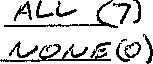 ALL (7)
NONE (0)